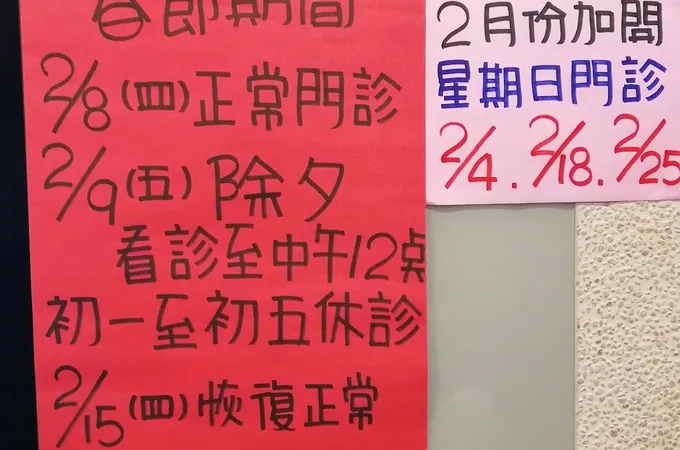 春節期間
2/8(四)正常門診
2/9(五)除夕
看診至中午12点
初一至初五休診
2/15(四)恢復正常
2月份加開
星期日門診
2/4.2/18.2/25